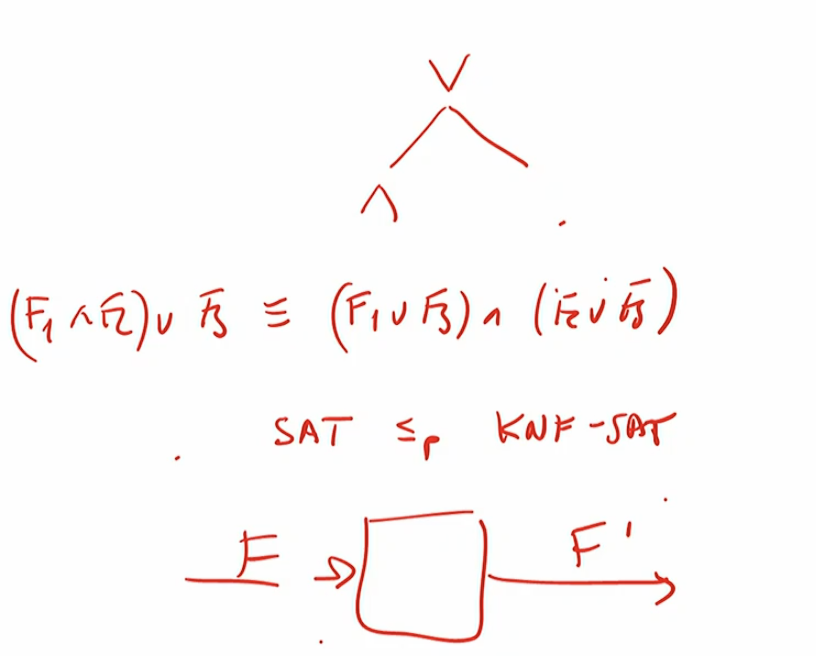 ∨
∧
(F1 ∧ F2) ∨ F3 ≡ (F1 ∨ F3) ∧ (F2 ∨ F3)
SAT ≤p KNF-SAT
F F'